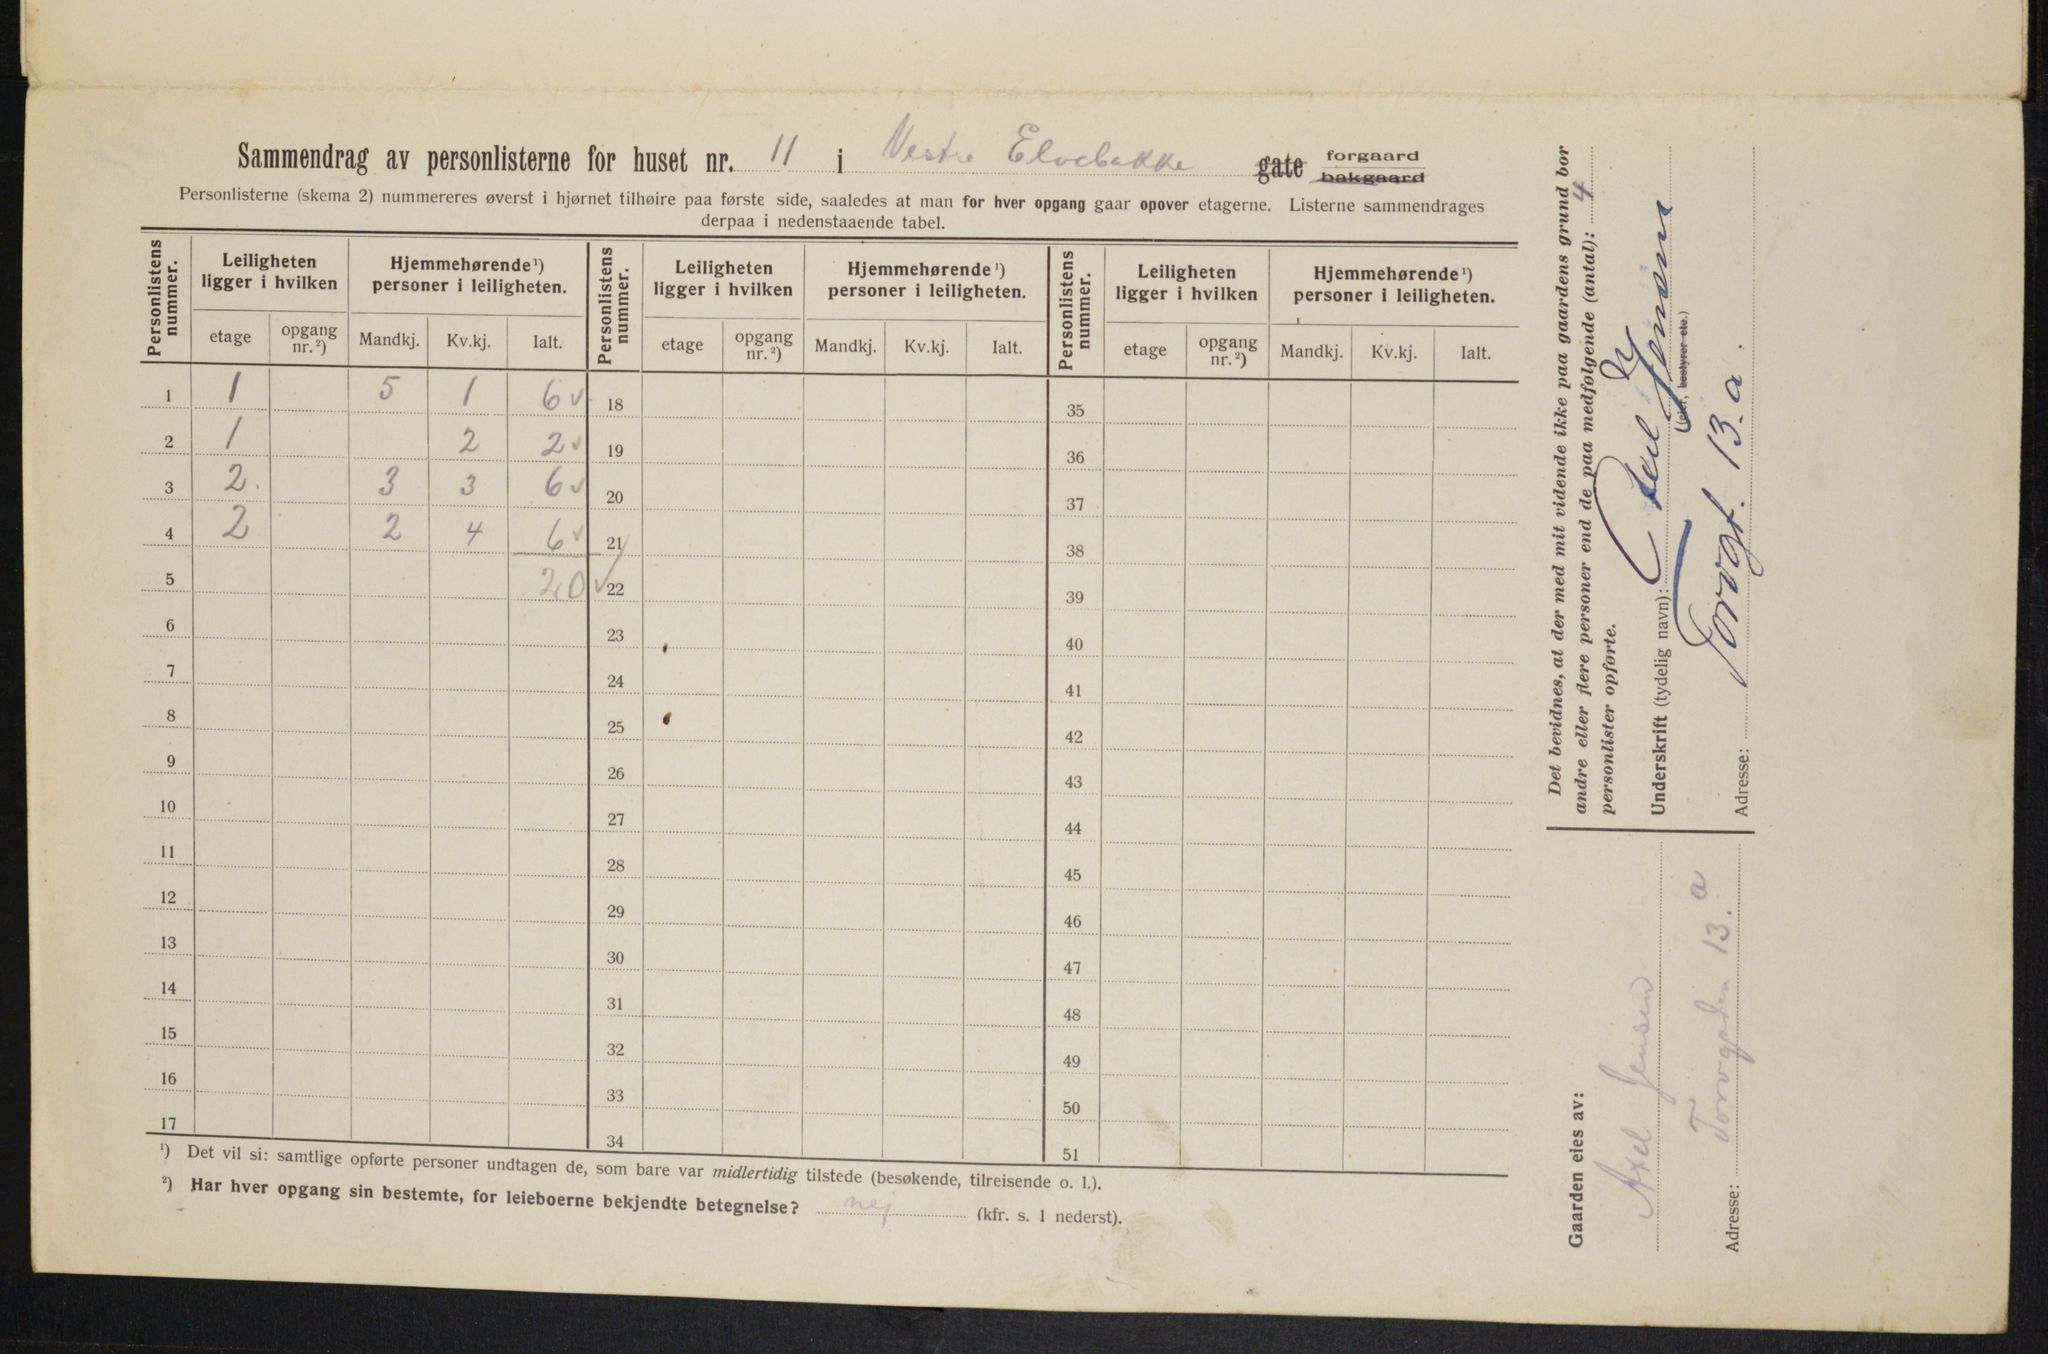 Sammendrag av personlisterne for huset nr. 11 i Vestre Elvebakke gate forgaard bakgaard
Personlisterne (skema 2) nummereres øverst i hjørnet tilhøire paa første side, saaledes at man for hver opgang gaar opover etagerne. Listerne sammendrages
derpaa i nedenstaaende tabel.
Personlistens nummer. Leiligheten ligger i hvilken Hjemmehørende ¹) personer i leiligheten. Personlistens nummer. Leiligheten ligger i hvilken Hjemmehørende ¹) personer i leiligheten. Personlistens nummer. Leiligheten ligger i hvilken Hjemmehørende ¹) personer i leiligheten.
etage opgang nr. ²) Mandkj. Kv.kj. Ialt. etage opgang nr. ²) Mandkj. Kv.kj. Ialt. etage opgang nr. ²) Mandkj. Kv.kj. Ialt.
1 1 5 1 6 ✓ 18 35
2 1 2 2 ✓ 19 36
3 2. 3 3 6 ✓ 20 37
4 2 2 4 6 ✓ 21 38
5 20 ✓ 22 39
6 23 40
7 24 41
8 25 42
9 26 43
10 27 44
11 28 45
12 29 46
13 30 47
14 31 48
15 32 49
16 33 50
17 34 51
¹) Det vil si: samtlige opførte personer undtagen de, som bare var midlertidig tilstede (besøkende, tilreisende o. l.).
²) Har hver opgang sin bestemte, for leieboerne bekjendte betegnelse? nej (kfr. s. 1 nederst).
Det bevidnes, at der med mit vidende ikke paa gaardens grund bor
andre eller flere personer end de paa medfølgende (antal): 4
personlister opførte.
Underskrift (tydelig navn): Axel Jensen
(eier, bestyrer etc.)
Adresse: Torvgt. 13. a.
Gaarden eies av:
Axel Jensen
Adresse: Torvgaden 13. a